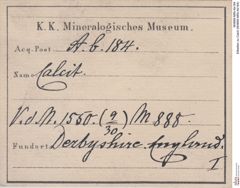 K. K. Mineralogisches Museum.
Acq.-Post A. b. 184.
Name Calcit.
V. d. M. 1550. (9/30) M 888.
Fundort Derbyshire England.
I